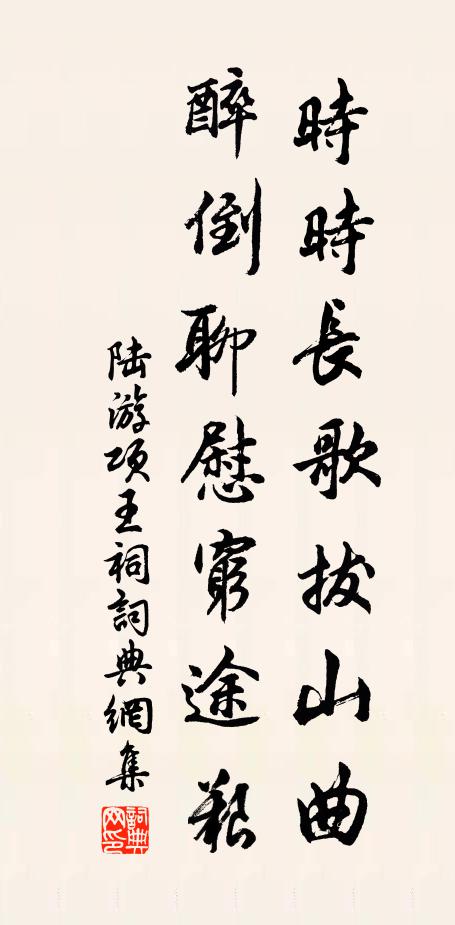 時時長歌拔山曲
醉倒聊慰窮途艱
陆游項王祠詞典網集
詞典
网印